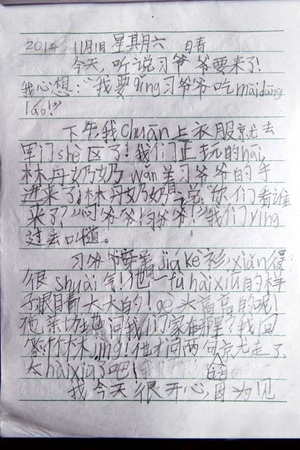 2014 11月1日 星其月六 日青
今天,听说习爷爷要来了!
我心想:"我要qǐng习爷爷吃màidāng
láo!"
下午我chuān上衣服京尤去
军门shè区了!我们正玩的hāi,
林丹奶奶wǎn着习爷爷的手
进来了!林丹奶奶说:"你们看谁
来了?""习爷爷!习爷爷!"我们yíng
过去叫道。
习爷爷穿着jiá kè衫xiǎn得
很shuài气!他一fù hǎi xiá的样
子,眼睛大大的!go头高高的呢!
他亲切地问我们家住哪里?我回
答:竹林jìng!他才问两句京尤走了
太hài xiū了吧!
我今天很开心,因为见